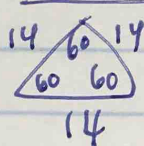 14 60 14
60 60
14